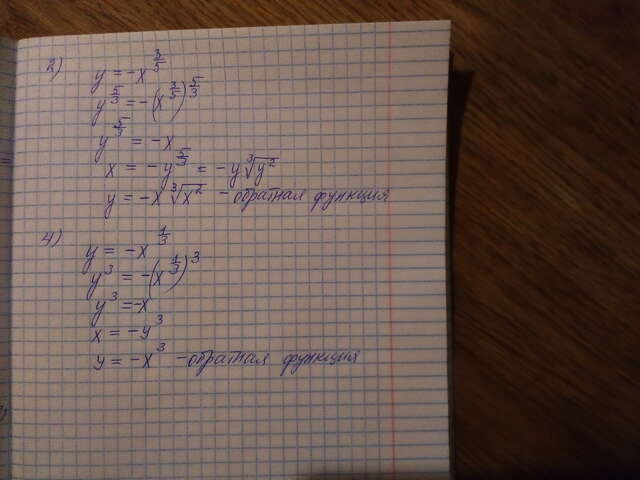 2)
y = -x^(3/5)
y^(5/3) = -(x^(3/5))^(5/3)
y^(5/3) = -x
x = -y^(5/3) = -y∛y²
y = -x ∛x² - обратная функция
4)
y = -x^(1/3)
y³ = -(x^(1/3))³
y³ = -x
x = -y³
y = -x³ - обратная функция